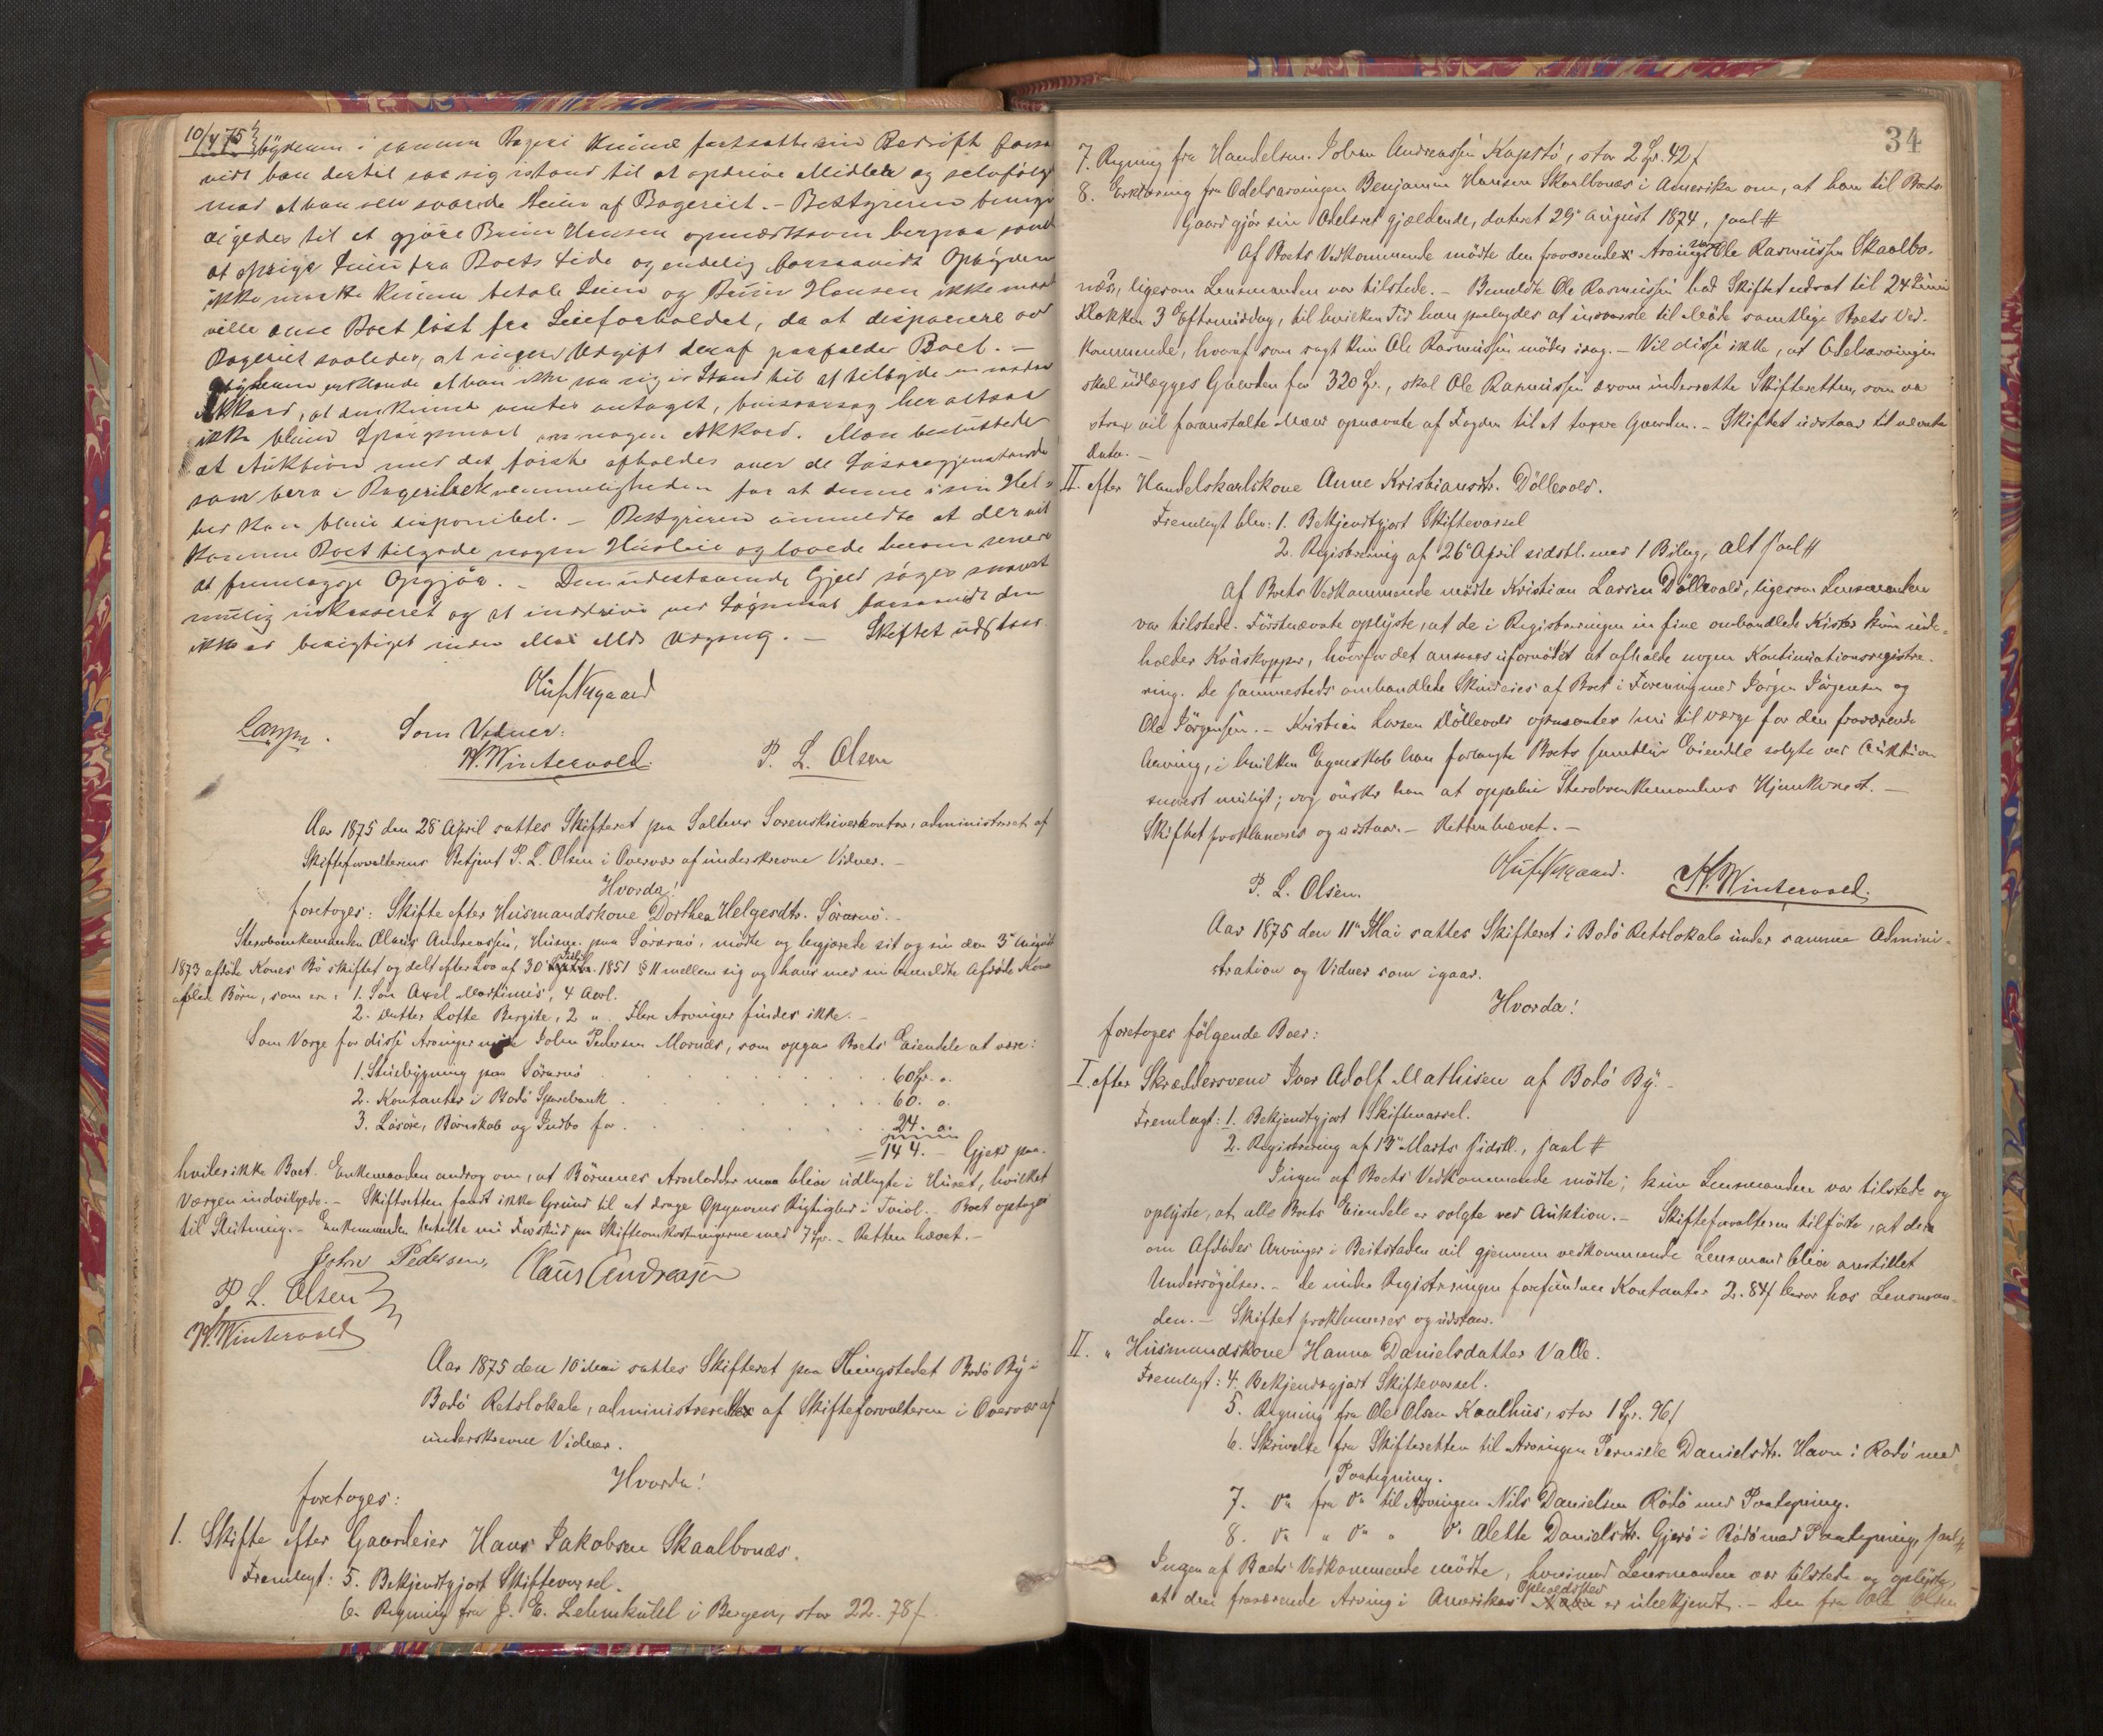 10/4 75
i samme Bageri kunne fortsætte sin Bedrift forsaa
vidt han dertil saa sig istand til at opdrive Midler og selvfølge
med at han selv svarede Leien af Bageriet. - Bestyreren bemyn
digedes til at gjøre Bruun Hansen opmærksom herpaa samt
at opsige Leien fra Boets Side og endelig forsaavidt Opbyderen
ikke maatte kunne betale Leien og Bruun Hansen ikke maatte
ville anse Boet løst fra Leieforholdet, da at disponere over
Bageriet saaledes, at ingen Udgift deraf paafalder Boet. -
erklærede at han ikke saa sig i Stand til at tilbyde en saadan
Akkord, at den kunne ventes antaget, hvisaarsag her altsaa
ikke bliver Spørgsmaal om nogen Akkord. Man besluttede
at Auktion med det første afholdes over de Løsøregjenstande
som bero i Bagerilokaler for at denne i sin Hel-
hed kan blive disponibel. - Bestyreren anmeldte at der vil
komme Boet tilgode nogen Husleie og lovede herom senere
at fremlægge Opgjør. - Den udestaaende Gjeld søges snarest
mulig inkasseret og at inddrive ved Søgsmaal forsaavidt den
ikke er berigtiget inden Mai Mds Udgang. - Skiftet udstaar
Som Vidner:
W. Wintervold. P. L. Olsen
Aar 1875 den 28 April sattes Skifteret paa Saltens Sorenskriverkontor, administreret af
Skifteforvalterens Betjent P. L. Olsen i Overvær af underskrevne Vidner. -
Hvorda!
foretoges: Skifte efter Husmandskone Dorthea Helgesdtr. Sörarnö. -
Skerobo Enkemanden Claus Andreassen, Husm. paa Sörarnö, mødte og begjærede sit og sin den 3' August
1873 afdøde Kones Bo skiftet og delt efter Lov af 30' Juli 1851 § 11 mellem sig og hans med sin bemeldte Afdøde Kone
aflede Børn, som ere: 1. Søn Axel Martinus, 4 Aar.
2. Datter Lotte Bergite, 2 " . Flere Arvinger findes ikke. -
Som Værge for disse Arvinger mødte John Pedersen Mornæs, som opgav Boets Eiendele at være:
1. Stuebygning paa Sörarnö . . . . . . 60 Spr. ".
2. Kontanter i Bodø Sparebank . . . . . . 60. ".
3. Løsøre, Bohskab og Indbo for . . . . . . 24. ".
= 144. - Gjeld paa-
hviler ikke Boet. Enkemanden androg om, at Børnenes Arvelodder maa blive udlagte i Huset, hvilket
Værgen indvilgede. - Skifteretten fandt ikke Grund til at drage Opgavens Rigtighed i Tvivl. - Boet optoges
til Slutning. - Enkemanden betalte nu Forskud paa Skifteomkostningerne med 7 Spr. - Retten hævet. -
John Pedersen, Claus Andreasen
P. L. Olsen
W. Wintervold
Aar 1875 den 10' Mai sattes Skifteret paa Thingstedet Bodø By i
Bodø Retslokale, administreret af Skifteforvalteren i Overvær af
underskrevne Vidner.
Hvorda!
foretoges:
1. Skifte efter Gaardeier Hans Jakobsen Skaalbonæs.
Fremlagt: 5. Bekjendtgjort Skiftevarsel.
6. Regning fra J. E. Lehmkuhl i Bergen, stor 22. 78 ſ.
34
7. Regning fra Handelsm. Johan Andreassen Kopstø, stor 2 Spr. 42 ſ
8. Erklæring fra Odelsarvingen Benjamin Hansen Skaalbonæs i Amerika om, at han til Boets
Gaard gjør sin Odelsret gjældende, dateret 29' August 1874, saal #
Af Boets Vedkommende mødte den fraværende Arvings Ole Rasmussen Skaalbo-
næs, ligesom Lensmanden var tilstede. - Bemeldte Ole Rasmussen bad Skiftet udsat til 24 Juni
Klokken 3 Eftermiddag, til hvilken Tid han paalagdes at indvarsle til Møde samtlige Boets Ved-
kommende, hvoraf som sagt kun Ole Rasmussen møder idag. - Vil disse ikke, at Odelsarvingen
skal udlægges Gaarden for 320 Spr., skal Ole Rasmussen derom underrette Skifteretten, som da
strax vil foranstalte Mænd opnævnte af Fogden til at taxere Gaarden. - Skiftet udstaar til nævnte
Dato. -
II. efter Handelskarlskone Anne Kristiansdtr. Döllevold.
Fremlagt blev: 1. Bekjendtgjort Skiftevarsel
2. Registrering af 26' April sidstl. med 1 Bilag, alt saal #
Af Boets Vedkommende mødte Kristian Larsen Döllevold, ligesom Lensmanden
var tilstede. Førstnævnte oplyste, at de i Registreringen in fine omhandlede Kister kun inde-
holder Kruskopper, hvorfor det ansees ufornødent at afholde nogen Kontinuationsregistre-
ring. De sammesteds omhandlede Skind eies af Boet i Forening med Jørgen Jørgensen og
Ole Jørgensen. - Kristian Larsen Döllevold opnævntes nu til Værge for den fraværende
Arving, i hvilken Egenskab han forlangte Boets samtlige Eiendele solgte ved Auktion
snarest muligt; dog ønsker han at oppebie Enkemandens Hjemkomst. -
Skiftet proklameres og udstaar. - Retten hævet. -
P. L. Olsen. W. Wintervold.
Aar 1875 den 11' Mai sattes Skifteret i Bodø Retslokale under samme Admini-
stration og Vidner som igaar.
Hvorda!
foretoges følgende Boer:
I. efter Skræddersvend Iver Adolf Mathisen af Bodø By. -
Fremlagt: 1. Bekjendtgjort Skiftevarsel.
2. Registrering af 13' Marts sidstl., saal #
Ingen af Boets Vedkommende mødte; kun Lensmanden var tilstede og
oplyste, at alle Boets Eiendele er solgte ved Auktion. - Skifteforvalteren tilføiede, at der
om Afdødes Arvinger i Beitstaden vil gjennem vedkommende Lensmand blive anstillet
Undersøgelser. - De under Registreringen forefundne Kontanter 2. 84 ſ beror hos Lensman-
den. - Skiftet proklameres og udstaar.
II. " Husmandskone Hanna Danielsdatter Valle.
Fremlagt: 4. Bekjendtgjort Skiftevarsel.
5. Regning fra Ole Olsen Kaalhus, stor 1 Spr. 96 ſ
6. Skrivelse fra Skifteretten til Arvingen Pernille Danielsdtr. Havn i Rødø med
Paategning.
7. Do fra Do til Arvingen Nils Danielsen Rödö med Paategning.
8. Do " Do " Do Alette Danielsdtr. Gjerø i Rödö med Paategning, saal #
Ingen af Boets Vedkommende mødte, hvorimod Lensmanden var tilstede og oplyste,
at den fraværende Arving i Amerikas Opholdssted er ubekjendt. - Den fra Ole Olsen